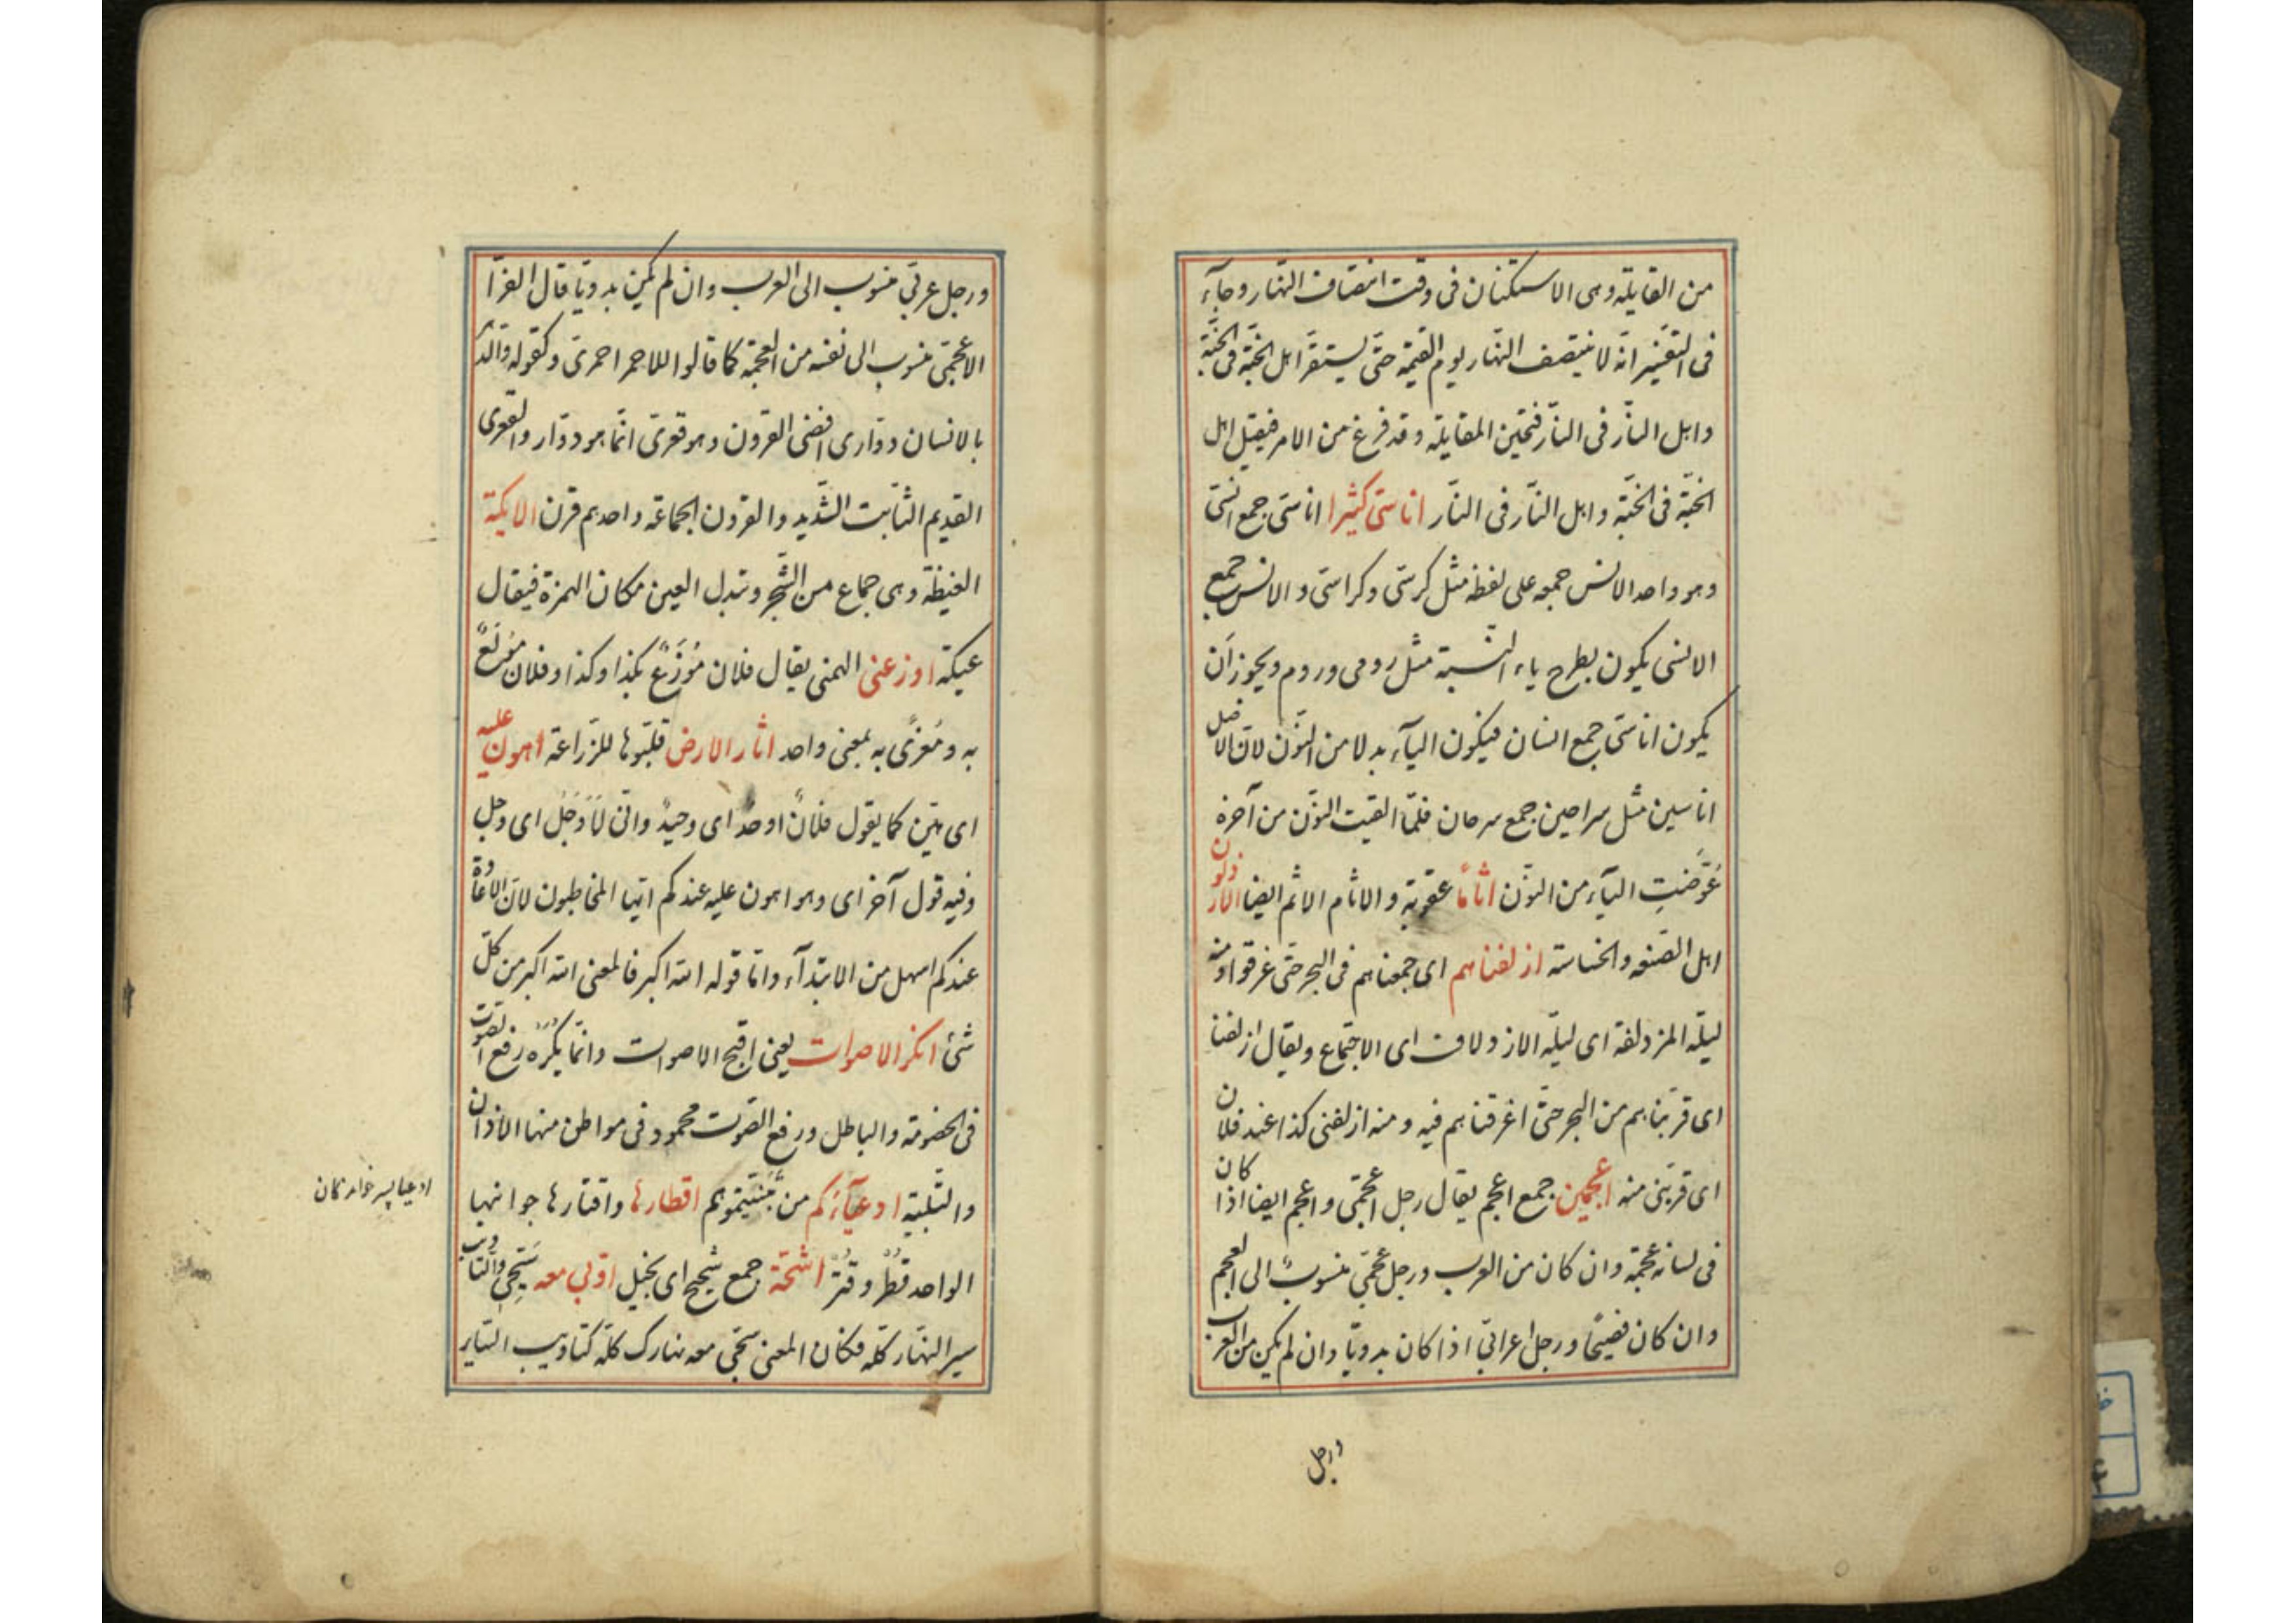 من القايلة وهى الاستكنان فى وقت انتصاف النّهار وجآء
فى التفسير انّه لا ينتصف النّهار يوم القيمة حتّى يستقرّ اهل الجنّة فى الجنّة
واهل النّار فى النّار فتحين المقايلة وقد فرغ من الامر فيقيل اهل
الجنّة فى الجنّة واهل النّار فى النّار اناسىّ كثيرا اناسىّ جمع انسىّ
وهو واحد الانس جمعه على لفظه مثل كرسّى وكراسىّ والانس جمع
الانسى يكون بطرح ياء النّسبة مثل رومى وروم ويجوز اَن
يكون اناسىّ جمع انسان فيكون اليآء بدلا من النّون لانّ الاصل
اناسين مثل سراحين جمع سرحان فلمّا القيت النّون من آخره
عُوّضَتِ اليآء من النّون اثامًا عقوبة والاثام الاثم ايضا الارذلون
اهل الضّعه والخساسة ازلفناهم اى جمعناهم فى البحر حتّى غرقوا ومنه
ليلة المزدلفة اى ليلة الازدلاف اى الاجتماع ويقال ازلفنا
اى قربّناهم من البحر حتّى اغرقناهم فيه ومنه ازلفنى كذا عند فلان
اى قربّنى منه اعجمين جمع اعجم يقال رجل اعجمّى واعجم ايضا اذا كان
فى لسانه عجمة وان كان من العرب ورجل عجمّى منسوبٌ الى العجم
وان كان فصيحًا ورجل اعرابىّ اذا كان بدويّا وان لم يكن من العرب
ورجل
ورجل عربىّ منسوب الى العرب وان لم يكن بدويّا قال الفرّا
الاعجمّى منسوب الى نفسه من العجمة كما قالوا للاحمر احمرى وكقوله والدّ
بالانسان دوّارى افنى القرون وهو قعرى انّما هو دوّار والقعرى
القديم الثّابت الشّديد والقرون الجماعة واحدهم قرن الايكة
الغيظة وهى جماع من الشّجر وتبدل العين مكان الهمزة فيقال
عيكة اوزعنى الهمنى يقال فلان مُوْزَعٌ بكذا وكذا وفلان مُولَعٌ
به ومُغرًى به بمعنى واحد اثار الارض قلبّوها للزّراعة اهون عليه
اى هيّن كما يقول فلانٌ اوحدٌ اى وحيدٌ وانّى لَاَوجَلُ اى وجل
وفيه قول آخر اى وهو اهون عليه عندكم ايّها المخاطبون لانّ الاعادة
عندكم اسهل من الابتدآء وامّا قوله الله اكبر فالمعنى الله اكبر من كلّ
شئ انكر الاصوات يعنى اقبح الاصوات وانّما يكره رفع الصّوت
فى الخصومة والباطل ورفع الصّوت محمود فى مواطن منها الاذان
والتّلبية ادعيآءكم من تبنّيتموهم اقطارها واقتارها جوانبها
الواحد قطرٌ وقترٌ اشحّة جمع شحيح اى بخيل اوّبى معه سَبّحِى والتّاويب
سير النّهار كلّه فكان المعنى سبّحى معه نهارك كلّه كتاويب السّاير
ادعيا پسر خواندكان